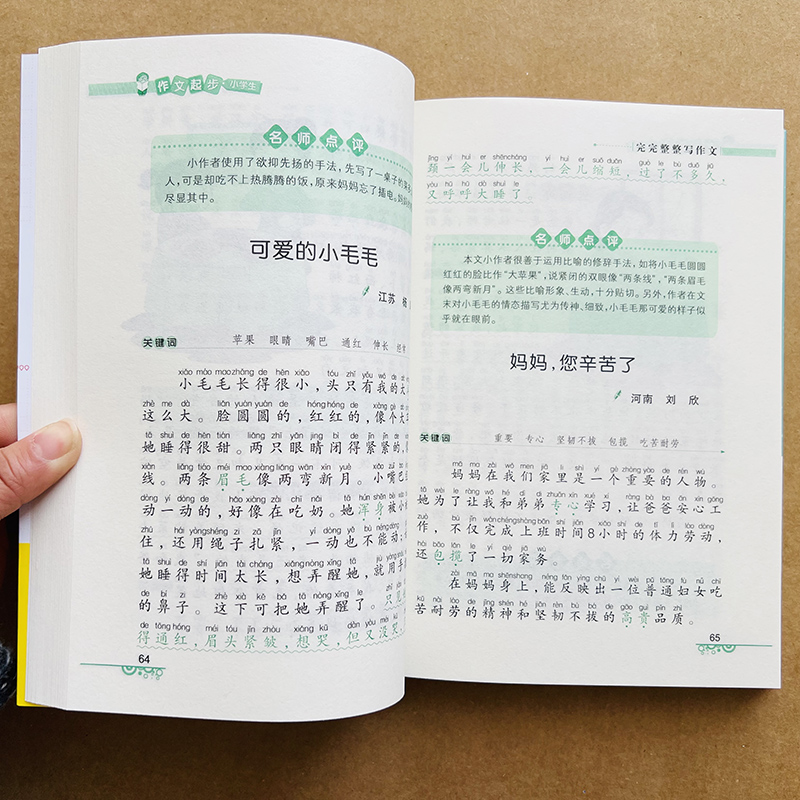 作文起步·小学生
名师点评
小作者使用了欲抑先扬的手法,先写了一桌子的
人,可是却吃不上热腾腾的饭,原来妈妈忘了插电。妈妈
尽显其中。
可爱的小毛毛
江苏 杨
关键词
苹果 眼睛 嘴巴 通红 伸长
xiǎo máo mao zhǎng de hěn xiǎo tóu zhǐ yǒu wǒ de dà
小毛毛长得很小,头只有我的大
zhè me dà liǎn yuán yuán de hóng hóng de xiàng gè dà
这么大。脸圆圆的,红红的,像个大
tā shuì de hěn tián liǎng zhī yǎn jīng bì de jǐn jǐn de
她睡得很甜。两只眼睛闭得紧紧的,
xiàn liǎng tiáo méi mao xiàng liǎng wān xīn yuè xiǎo zuǐ ba
线。两条眉毛像两弯新月。小嘴巴
dòng yí dòng de hǎo xiàng zài chī nǎi tā hún shēn bèi xiǎo
动一动的,好像在吃奶。她浑身被小
zhù hái yòng shéng zi zā jǐn yí dòng yě bù néng dòng
住,还用绳子扎紧,一动也不能动
tā shuì de shí jiān tài cháng xiǎng nòng xǐng tā jiù yòng shǒu
她睡得时间太长,想弄醒她,就用手
de bí zi zhè xià kě bǎ tā nòng xǐng le
的鼻子。这下可把她弄醒了。只见
de tōng hóng méi tóu jǐn zhòu xiǎng kū dàn yòu méi kū
得通红,眉头紧皱,想哭,但又没哭
64
完完整整写作文
jǐng yí huì er shēn cháng yí huì er suō duǎn guò le bù duō jiǔ
颈一会儿伸长,一会儿缩短,过了不多久,
yòu hū hū dà shuì le
又呼呼大睡了
名师点评
本文小作者很善于运用比喻的修辞手法,如将小毛毛圆圆
红红的脸比作“大苹果”,说紧闭的双眼像“两条线”,“两条眉毛
像两弯新月”。这些比喻形象、生动,十分贴切。另外,作者在文
末对小毛毛的情态描写尤为传神、细致,小毛毛那可爱的样子似
乎就在眼前。
妈妈,您辛苦了
河南 刘 欣
关键词
重要 专心 坚韧不拔 包揽 吃苦耐劳
mā ma zài wǒ men jiā li shì yí gè zhòng yào de rén wù
妈妈在我们家里是一个重要的人物。
tā wèi le ràng wǒ hé dì di zhuān xīn xué xí ràng bà ba ān xīn gōng
她为了让我和弟弟专心学习,让爸爸安心工
zuò bù jǐn wán chéng shàng bān shí jiān xiǎo shí de tǐ lì láo dòng
作,不仅完成上班时间8小时的体力劳动,
hái bāo lǎn le yí qiè jiā wù
还包揽了一切家务。
zài mā ma shēn shang néng fǎn yìng chū yí wèi pǔ tōng fù nǚ chī
在妈妈身上,能反映出一位普通妇女吃
kǔ nài láo de jīng shén hé jiān rèn bù bá de gāo guì pǐn zhì
苦耐劳的精神和坚韧不拔的高贵品质。
65